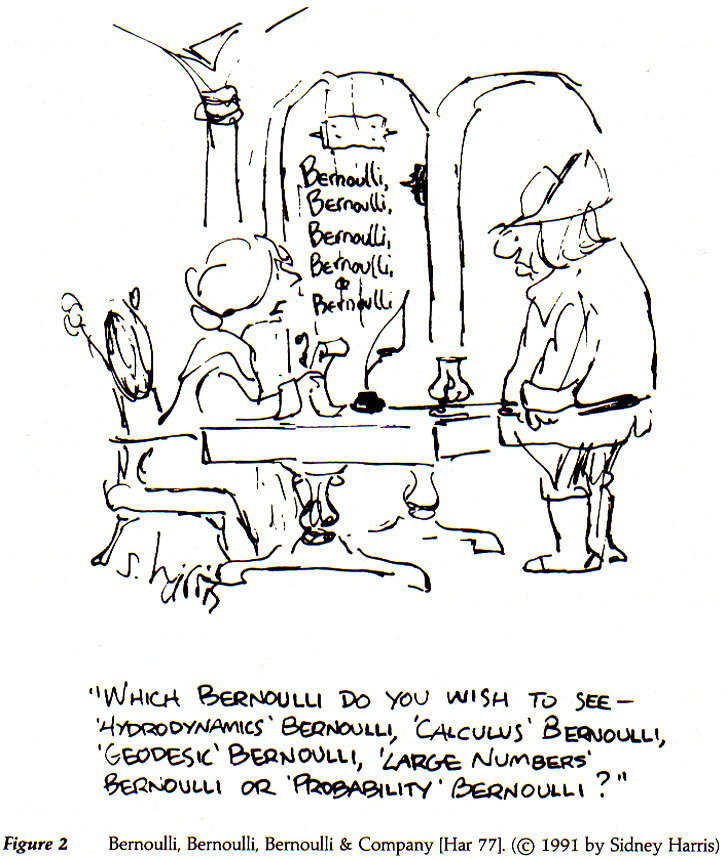 Bernoulli,
Bernoulli,
Bernoulli,
Bernoulli,
&
Bernoulli
S. Harris
"WHICH BERNOULLI DO YOU WISH TO SEE—
'HYDRODYNAMICS' BERNOULLI, 'CALCULUS' BERNOULLI,
'GEODESIC' BERNOULLI, 'LARGE NUMBERS'
BERNOULLI OR 'PROBABILITY' BERNOULLI?"
Figure 2 Bernoulli, Bernoulli, Bernoulli & Company [Har 77]. (© 1991 by Sidney Harris)